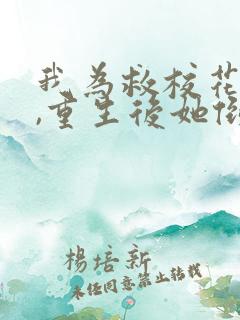 我為救校花
,重生後她
楊培新
未经同意禁止转载